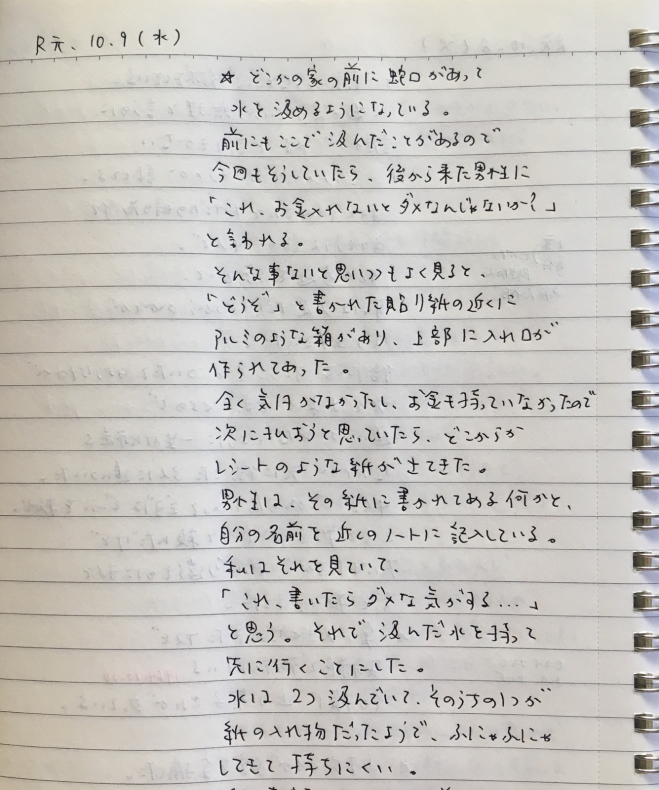 R元、10.9(水)
☆ どこかの家の前に蛇口があって
水を汲めるようになっている。
前にもここで汲んだことがあるので
今回もそうしていたら、後から来た男性に
「これ、お金入れないとダメなんじゃないか?」
と言われる。
そんな事ないと思いつつもよく見ると、
「どうぞ」と書かれた貼り紙の近くに
アルミのような箱があり、上部に入れ口が
作られてあった。
全く気付かなかったし、お金も持っていなかったので
次に払おうと思っていたら、どこからか
レシートのような紙が出てきた。
男性は、その紙に書かれてある何かと、
自分の名前を近くのノートに記入している。
私はそれを見ていて、
「これ、書いたらダメな気がする…」
と思う。それで汲んだ水を持って
先に行くことにした。
水は2つ汲んでいて、そのうちの1つが
紙の入れ物だったようで、ふにゃふにゃ
してきて持ちにくい。